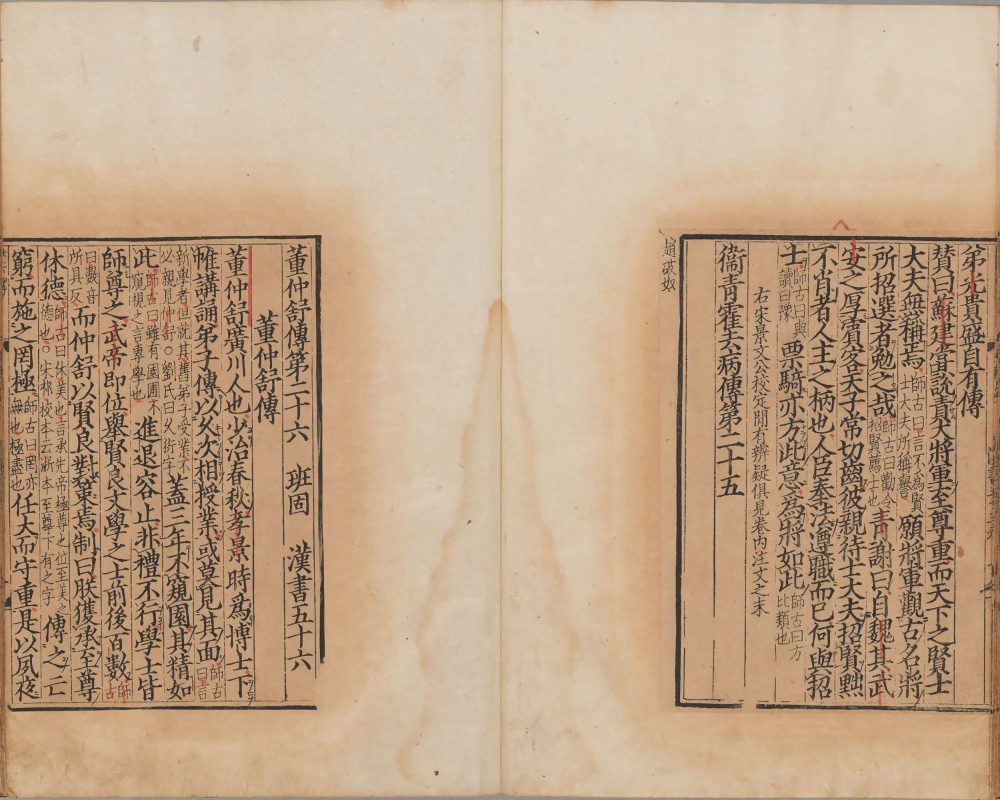 弟光貴盛自有傳
賛曰蘇建嘗說責大將軍至尊重而天下之賢士
大夫無稱焉師古曰言不為賢士大夫所稱譽願將軍觀古名將
所招選者勉之哉師古曰勸令招賢薦士也青謝曰自魏其武
安之厚賓客天子常切齒彼親待士大夫招賢黜
不肖者人主之柄也人臣奉法遵職而已何與招
士師古曰與讀曰豫票騎亦方此意為將如此師古曰方比類也
右宋景文公校定閒有辨疑俱見卷內注文之末
衞青霍去病傳第二十五
趙破奴
董仲舒傳第二十六 班固 漢書五十六
董仲舒傳
董仲舒廣川人也少治春秋孝景時為博士下
帷講誦弟子傳以久次相授業或莫見其面師古曰言
新學者但就其舊弟子受業不必親見仲舒○劉氏曰久衍字蓋三年不窺園其精如
此師古曰雖有園圃不窺視之言專學也進退容止非禮不行學士皆
師尊之武帝即位舉賢良文學之士前後百數師古
曰數音所具反而仲舒以賢良對策焉制曰朕獲承至尊
休德師古曰休美也言承先帝極尊之位至美之德也○宋祁校本云浙本至尊下有之字傳之亡
窮而施之罔極師古曰罔亦無也極盡也任大而守重是以夙夜